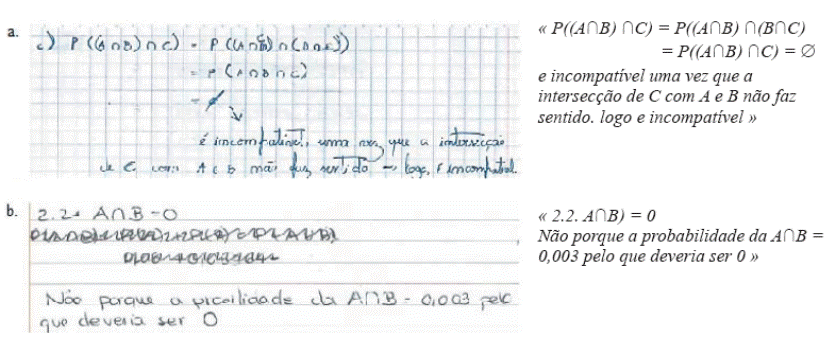 a.
c) P ((A∩B)∩C) = P((A∩B)∩(B∩C))
= P (A∩B∩C)
= ∅
é incompatível, uma vez que a intersecção
de C com A e B não faz sentido → logo, é incompatível.
« P((A∩B) ∩C) = P((A∩B) ∩(B∩C)
= P((A∩B) ∩C) = ∅
e incompatível uma vez que a
intersecção de C com A e B não faz
sentido. logo e incompatível »
b.
2.2. A∩B = 0
Não porque a da A∩B = 0,003 pelo
que deveria ser 0
« 2.2. A∩B) = 0
Não porque a probabilidade da A∩B =
0,003 pelo que deveria ser 0 »